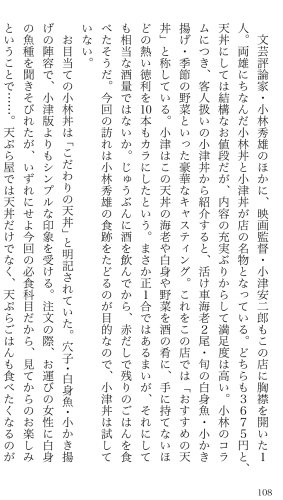 文芸評論家・小林秀雄のほかに、映画監督・小津安二郎もこの店に胸襟を開いた１
人。両雄にちなんだ小林丼と小津丼が店の名物となっている。どちらも３６７５円と、
天丼にしては結構なお値段だが、内容の充実ぶりからして満足度は高い。小林のコラ
ムにつき、客人扱いの小津丼から紹介すると、活け車海老２尾・旬の白身魚・小かき
揚げ・季節の野菜といった豪華なキャスティング。これをこの店では「おすすめの天
丼」と称している。小津はこの天丼の海老や白身や野菜を酒の肴に、手に持てないほ
どの熱い徳利を10本もカラにしたという。まさか正１合ではあるまいが、それにして
も相当な酒量ではないか。じゅうぶんに酒を飲んでから、赤だしで残りのごはんを食
べたそうだ。今回の訪れは小林秀雄の食跡をたどるのが目的なので、小津丼は試して
いない。
　お目当ての小林丼は「こだわりの天丼」と明記されていた。穴子・白身魚・小かき揚
げの陣容で、小津版よりもシンプルな印象を受ける。注文の際、お運びの女性に白身
の魚種を聞きそびれたが、いずれにせよ今回の必食科目だから、見てからのお楽しみ
ということで……。天ぷら屋では天丼だけでなく、天ぷらごはんも食べたくなるのが
108